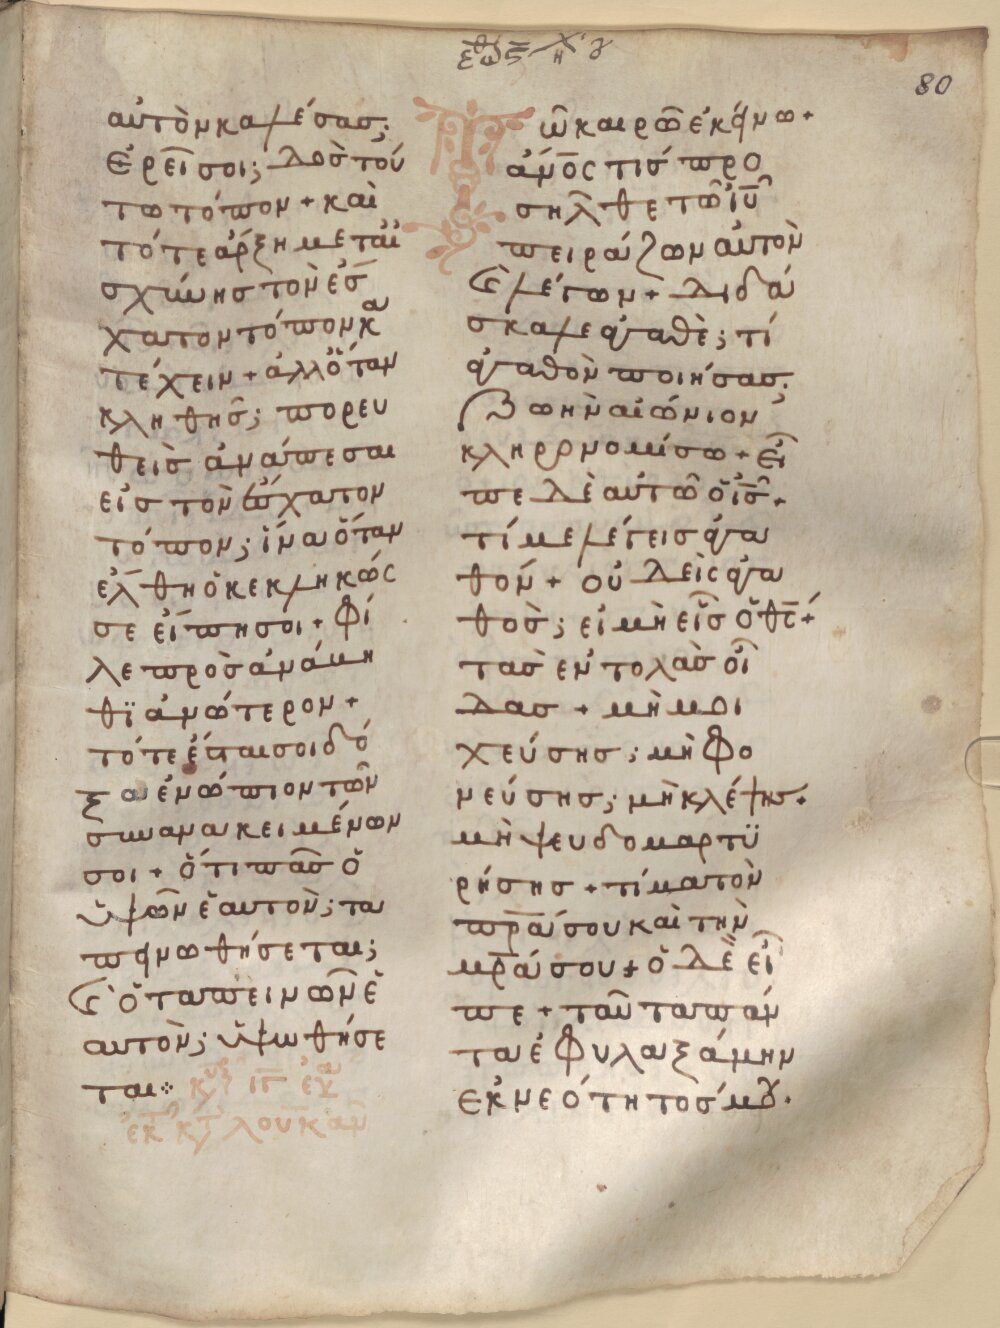 80
αὐτὸν καλέσας;
ἐρεῖ σοι; δὸς τού
τω τόπον + καὶ
τότε ἄρξη μετ αἰ
σχύνης τὸν ἔσ
χατον τόπον κα
τέχειν + ἀλλ ὅταν
κληθῆς; πορευ
θεὶς ἀνάπεσαι
εἰς τὸν ἔσχατον
τόπον; ἵνα ὅταν
ἔλθη ὁ κεκληκώς
σε εἴπη σοι + φί
λε προσανάβη
θϊ ἀνώτερον +
τότε ἔσται σοι δό
ξα ἐνώπιον τῶν
συνανακειμένων
σοι + ὅτι πᾶς ὁ
ὑψῶν ἑαυτὸν; τα
πεινωθήσεται;
καὶ ὁ ταπεινῶν ἑ
αυτὸν; ὑψωθήσε
ται
ἐκ λουκᾶν
Τῶ καιρῶ ἐκείνω +
ἄν̅ος τισ προ
σῆλθε τῶ ι̅υ
πειράζων αὐτὸν
καὶ λέγων + διδά
σκαλε ἀγαθὲ; τί
ἀγαθὸν ποιήσας;
ζωὴν αἰώνιον
κληρονομήσω + εἶ
πε δὲ αὐτῶ ὁ ι̅ς̅.
τί με λέγεις ἀγα
θόν + οὐδεὶς ἀγα
θὸς; εἰ μὴ εἷς ὁ θ̅ς̅ +
τὰς ἐντολὰς οἶ
δας + μὴ μοι
χεύσης; μὴ φο
νεύσης; μὴ κλέψης.
μὴ ψευδομαρτϋ
ρήσης + τίμα τὸν
π̅ρ̅α σου καὶ τὴν
μ̅ρ̅α σου + ὁ δὲ εἶ
πε + ταῦτα πάν
τα ἐφυλαξάμην
ἐκ νεότητος μου.